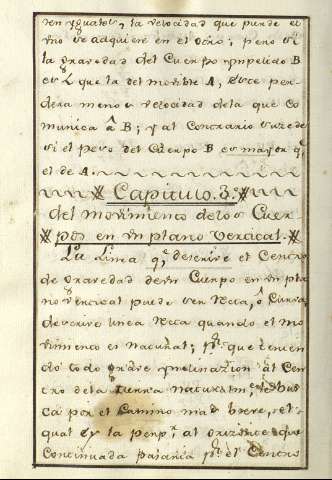 sen yguales, la velocidad que pierde el
vno se adquiere en el otro; pero si
la gravedad del Cuerpo ympelido B
es que la del movible A, este per-
dera menos velocidad dela que co
munica â B; y al contrario sucede
si el peso del Cuerpo B es mayor q.
el de A.
Capitulo. 3.
del movimiento de los Cuer-
pos en vn plano vertical.
La Linea q.e descrive el Centro
de gravedad de vn Cuerpo en vn pla
no vertical puede ser recta, ô Curva,
descrive linea recta quando el mo
vimiento es natural; p.r que tenien
do todo grave ynclinazion âl Cen
tro dela tierra naturalm.te bus
ca por el Camino mas breve, el
qual es la perp.r al orizonte que
Continuada pasaria p.r el Centro